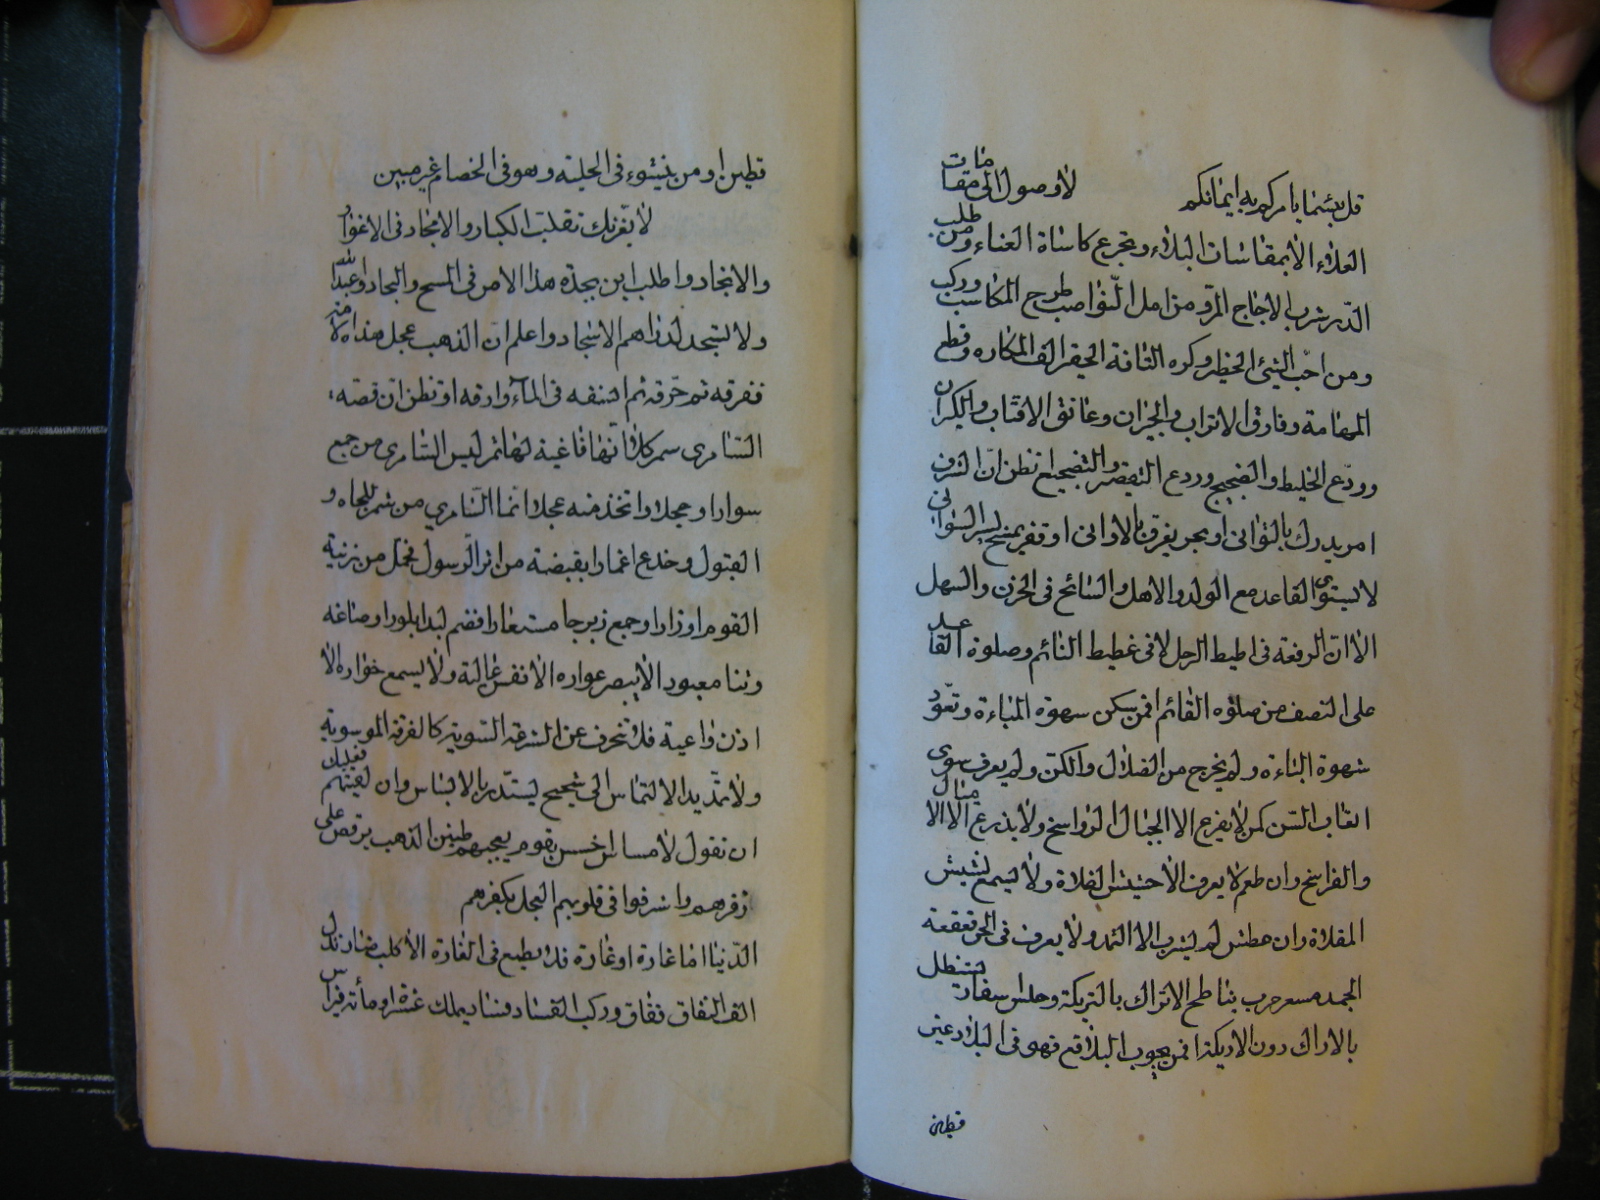 قل بئسما يامركم به ايمانكم لا وصول الى مقامات
العلاء الا بمقاسات البلاء وتجرع كاساة العناء ومن طلب
الدّر شرب الاجاج المرّ ومن امل النّواصب طرح المكاسب وركب
ومن احبّ الشئ الخطر وكره التافة الحقير الف المكاره وقطع
المهامة وفارق الاتراب والجيران وعانق الاقتاب والكيران
وودّع الخليط والضجيج وردع التقصير والتضجيع اتظن انّ الشرف
امر يدرك بالتوانى او بحر يغرف بالاوانى او قفر يمسح بسير السّوانى
لا يستوى القاعد مع الولد والاهل والسّائح فى الحزن والسهل
الا ان الرفعة فى اطيط الرحل لا فى غطيط النائم وصلوة القاعد
على النصف من صلوة القائم افمن سكن سهوة المباءة وتعوّد
شهوة الباءة ولم يخرج من الضلال والكن ولم يعرف سوى
اتعاب السّن كمن لا يفرع الا الجبال الرواسخ ولا يذرع الا الاميال
والفراسخ وان طعم لا يعرف الا حشيش الفلاة ولا يسمع نشيش
المقلاة وان عطش لم يشرب الا الثمد ولا يعرف فى الحر قعقعة
الجمد مسعر حرب يناطح الاتراك بالتريكة وحلس سفار يستظل
بالاراك دون الاريكة افمن يجوب البلاقع فهو فى البلاد عين
قطين
قطين او من ينشوء فى الحلية وهو فى الخصام غير مبين
لا يغرّنك تقلب الكبار والامجاد فى الاغوار
والانجاد واطلب ابن بجدة هذا الامر فى المسح والبجاد واعبد الله
ولا تسجد لدراهم الاسجاد واعلم انّ الذهب عجل هذه الامة
ففرقه ثم حرّقه ثم انسفه فى الماء وارقه اوتظن ان قصّة
السّامرى سمر كلا انّها فاغية لها ثمر ليس السّامرى من جمع
سوارا وحجلا واتخذ منه عجلا انّما السّامري من شمر للجاه و
القبول وخدع اغمارا بقبضة من اثر الرسول فحمل من زينة
القوم اوزارا وجمع زبرجا مستعارا فضم لبدا بلورا وصاغه
وثنا معبود الا يبصر عواره الا نفس عالية ولا يسمع خواره الا
اذن واعية فلا تنحرف عن الشرعة السّوية كالفرقة الموسوية
ولا تمدّ يد الالتماس الى شحيح يستدّر بالابساس وان لقيتهم فعليك
ان تقول لا مساس اخسس بقوم يعجبهم طنين الذهب برقص على
زفرهم واشرفوا فى قلوبهم العجل بكفرهم
الدّنيا اما غارة او غارة فلا يطمع فى الغارة الا كلب ضار ندل
الف النفاق فنفاق وركب الفساد فساد يملك غسّه او مأته فراس